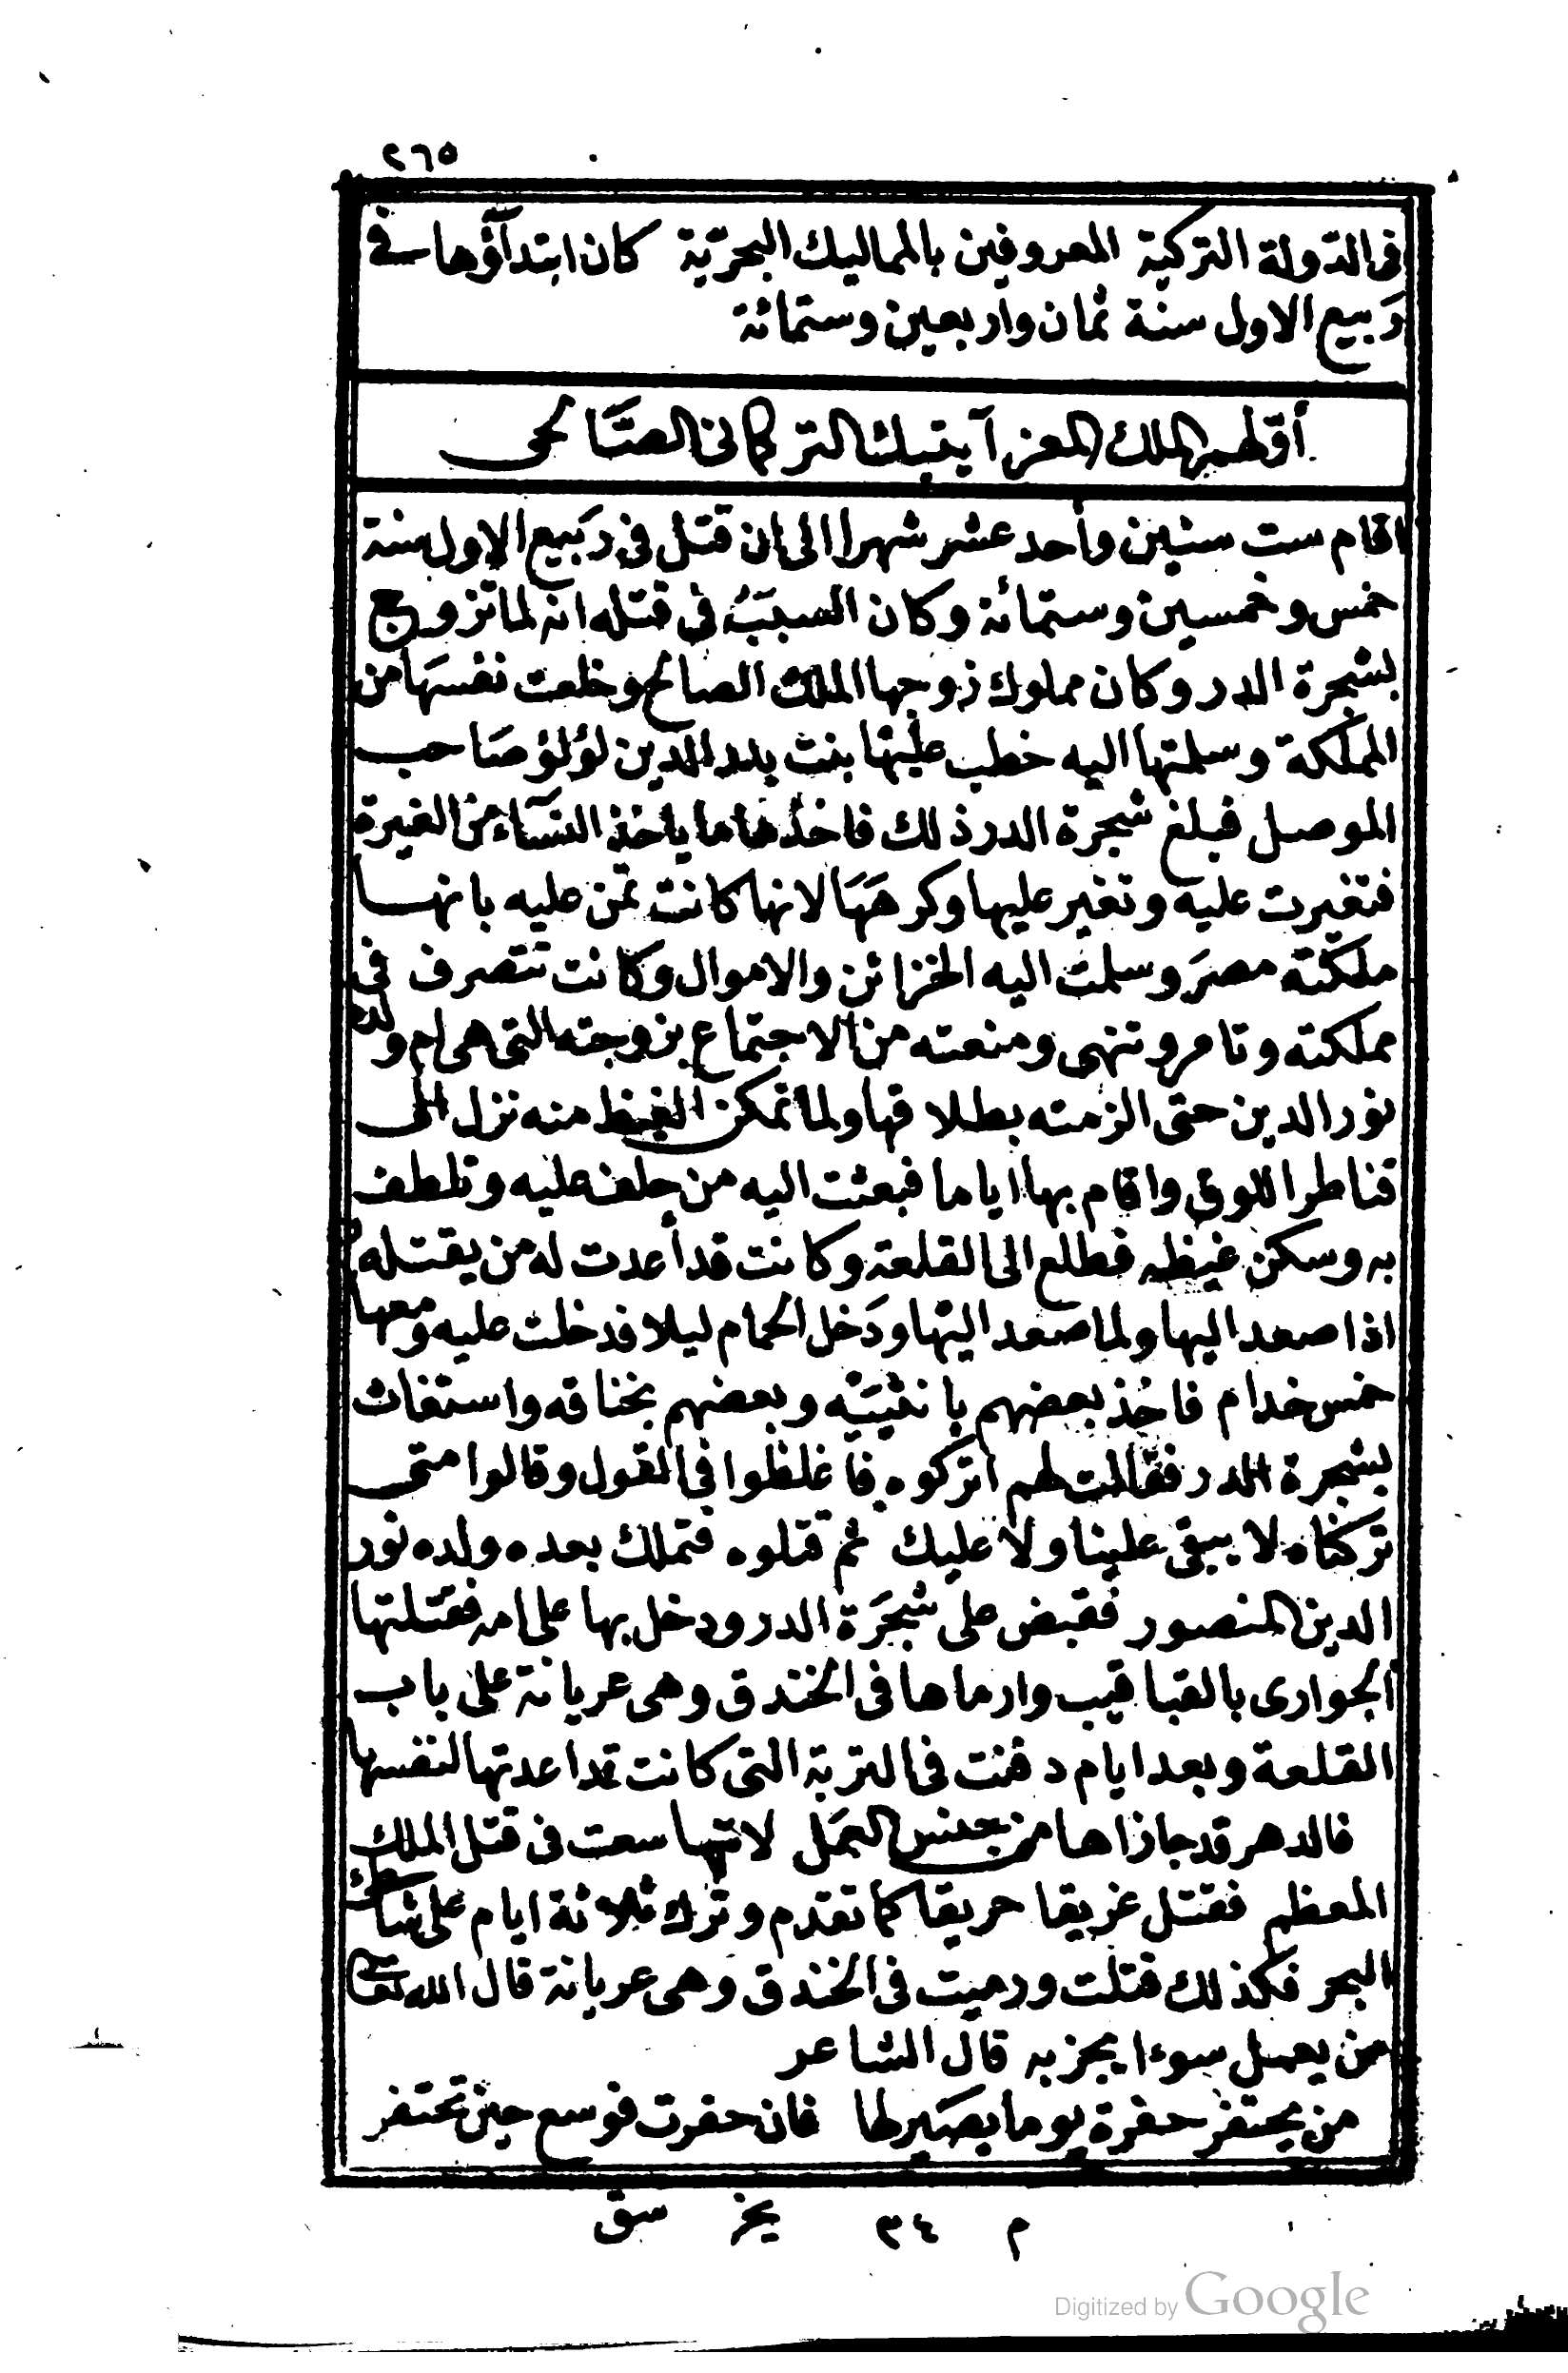 ٢٦٥
فى الدّولة التركية المعروفين بالمماليك البحريّة كان ابتدآؤها فى
رَبيع الاول سنة ثمان واربعين وستمائة
أوّلهم الملك المعز آيتبك التركمانى الصَّالحى
اقام ست سنين وأحد عشر شهرا الى ان قتل فى رَبيع الاول سنة
خمس وخمسين وستمائة وكان السببُ فى قتله انه لما تزوج
بشجرة الدر وكان مملوك زوجها الملك الصالح وخلعت نفسهَا من
المملكة وسلمتها اليه خطب عليها بنت بدر الدين لؤلؤ صَاحب
الموصل فبلغ شجرة الدر ذلك فاخذها ما ياخذ النسَآء من الغيرة
فتغيرت عليه وتغير عليها وكرهَهَا لانها كانت تمن عليه بانها
ملكته مصرَ وسلمت اليه الخزائن والاموال وكانت تتصرف فى
مملكته وتامر وتنهى ومنعته من الاجتماع بزوجته التى هى ام ولده
نور الدين حتى الزمته بطلاقها ولما تمكن الغيظ منه نزل الى
قناطر اللوق واقام بها اياما فبعثت اليه من حلف عليه وتلطف
به وسكن غيظه فطلع الى القلعة وكانت قد أعدت له من يقتله
اذا صعد اليها ولما صعد اليها ودَخل الحمام ليلا فدخلت عليه ومعها
خمس خدام فاخذ بعضهم بانثييَه وبعضهم بخناقه واستغاث
بشجرة الدر فقالت لهم اتركوه فاغلظوا فى القول وقالوا متى
تركناه لا يبقى علينا ولا عليك ثم قتلوه فتملك بعده ولده نور
الدين المنصور فقبض على شجرَة الدر ودخل بها على امه فقتلتها
الجوارى بالقباقيب وارماها فى الخندق وهى عريانة على باب
القلعة وبعد ايام دفنت فى التربة التى كانت قد اعدتها لنفسها
فالدهر قد جازاها من جنس العمَل لانها سعت فى قتل الملك
المعظم فقتل غريقا حريقا كما تقدم وترك ثلاثة ايام على شاطئ
البحر فكذلك قتلت ورميت فى الخندق وهى عريانة قال الله تعالى
من يعمل سوءا يجز به قال الشاعر
من يحتفر حفرة يوما يصَير لها فان حفرت فوسع حين تحتفر
م ٣٤ يخ سق
Digitized by Google